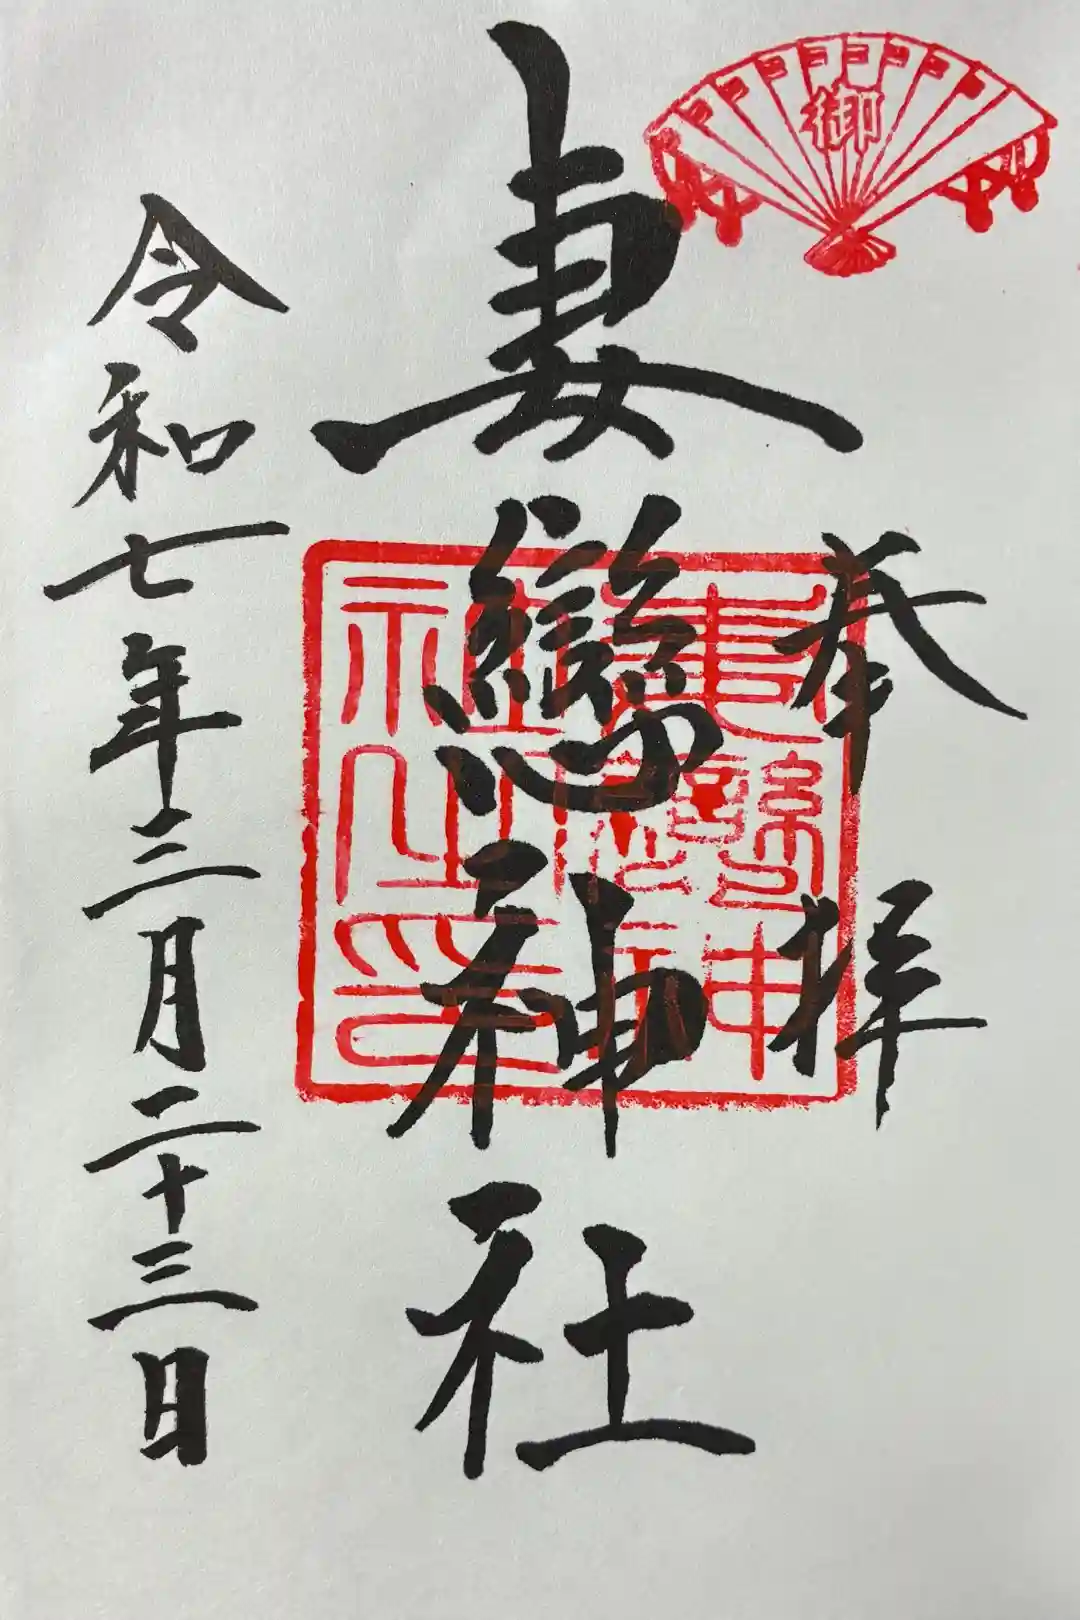 御
奉拝
妻戀神社
妻戀神社神社之印
令和七年三月二十三日